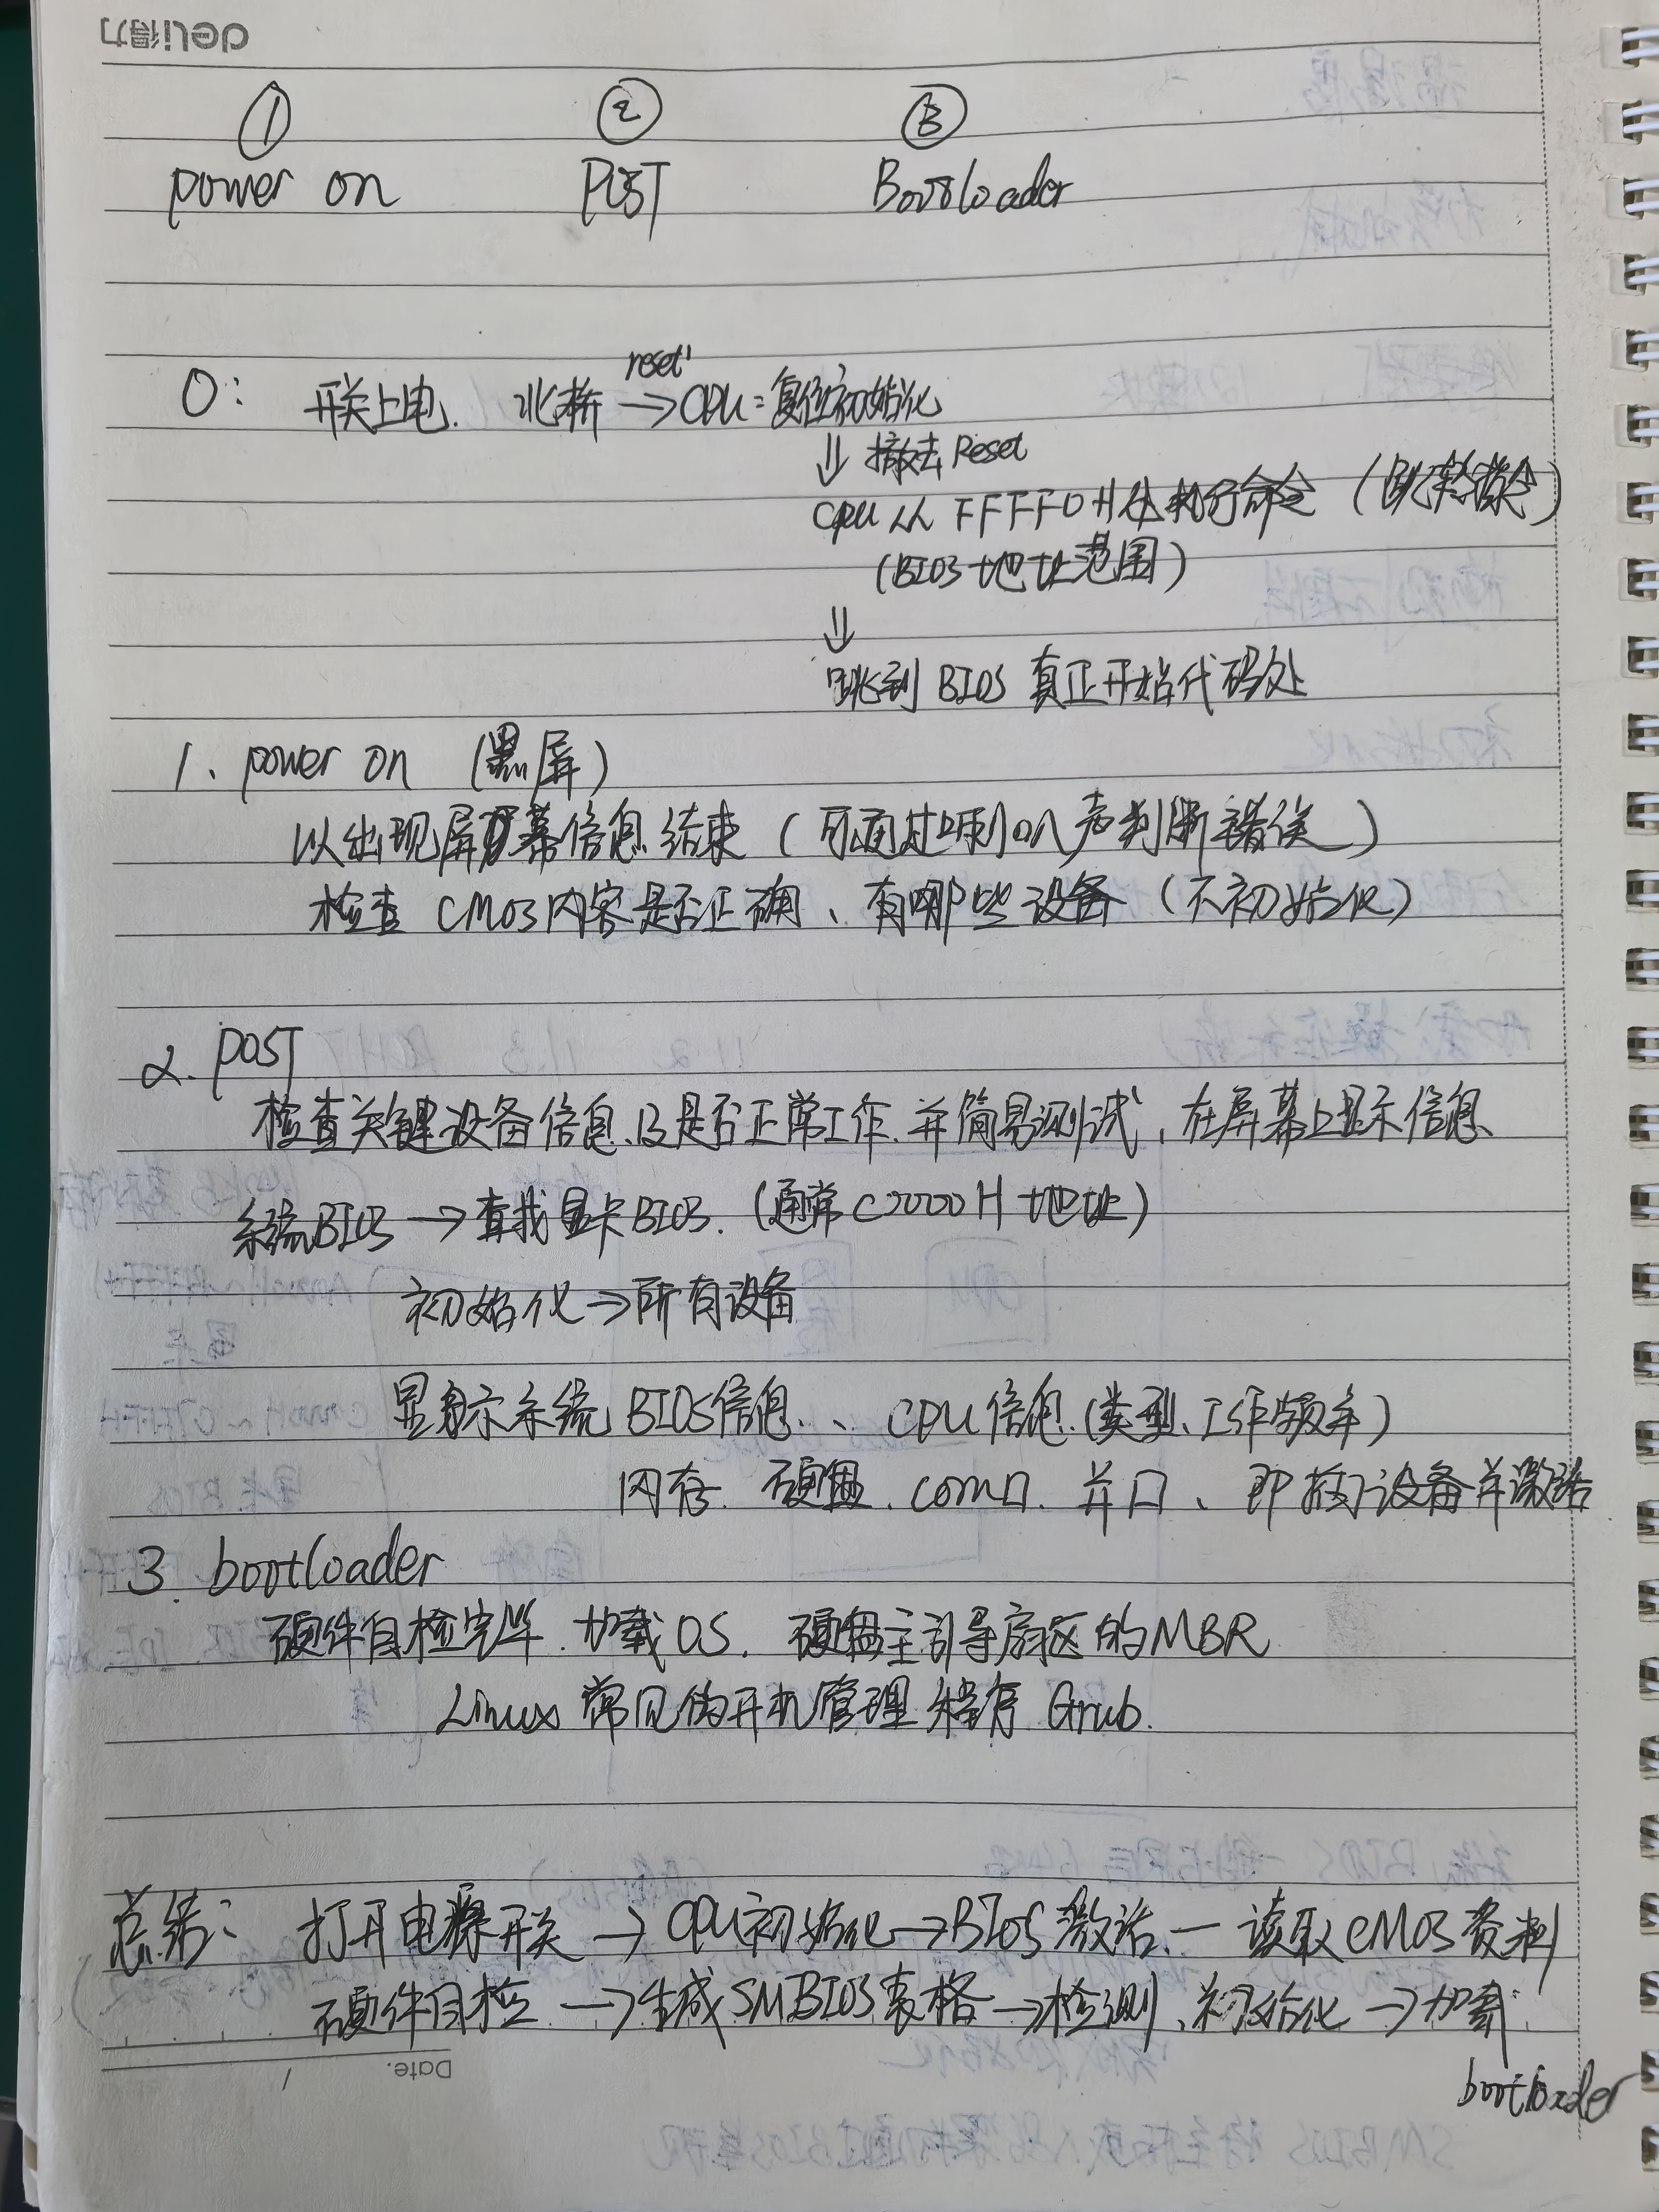 deli得力
① ② ③
power on POST Bootloader
reset
0: 开关上电. 北桥 → CPU: 复位初始化
⇓ 撤去 Reset
CPU 从 FFFF0H处执行命令 (跳转指令)
(BIOS地址范围)
⇓
跳到 BIOS 真正开始代码处
1、power on (黑屏)
以出现屏幕信息结束 (可通过喇叭声判断错误)
检查 CMOS内容是否正确、有哪些设备 (不初始化)
2. POST
检查关键设备信息及是否正常工作.并简易测试,在屏幕上显示信息
系统BIOS → 查找显卡BIOS. (通常C0000H地址)
初始化→所有设备
显示系统 BIOS信息、CPU信息(类型、工作频率)
内存. 硬盘. com口. 并口、即插设备并激活
3. bootloader
硬件自检完毕.加载OS. 硬盘主引导扇区的MBR
Linux 常见的开机管理程序 Grub.
总结: 打开电源开关 → CPU初始化→BIOS激活 — 读取CMOS资料
硬件自检 →生成SMBIOS表格→检测、初始化 →加载
bootloader
Date. /